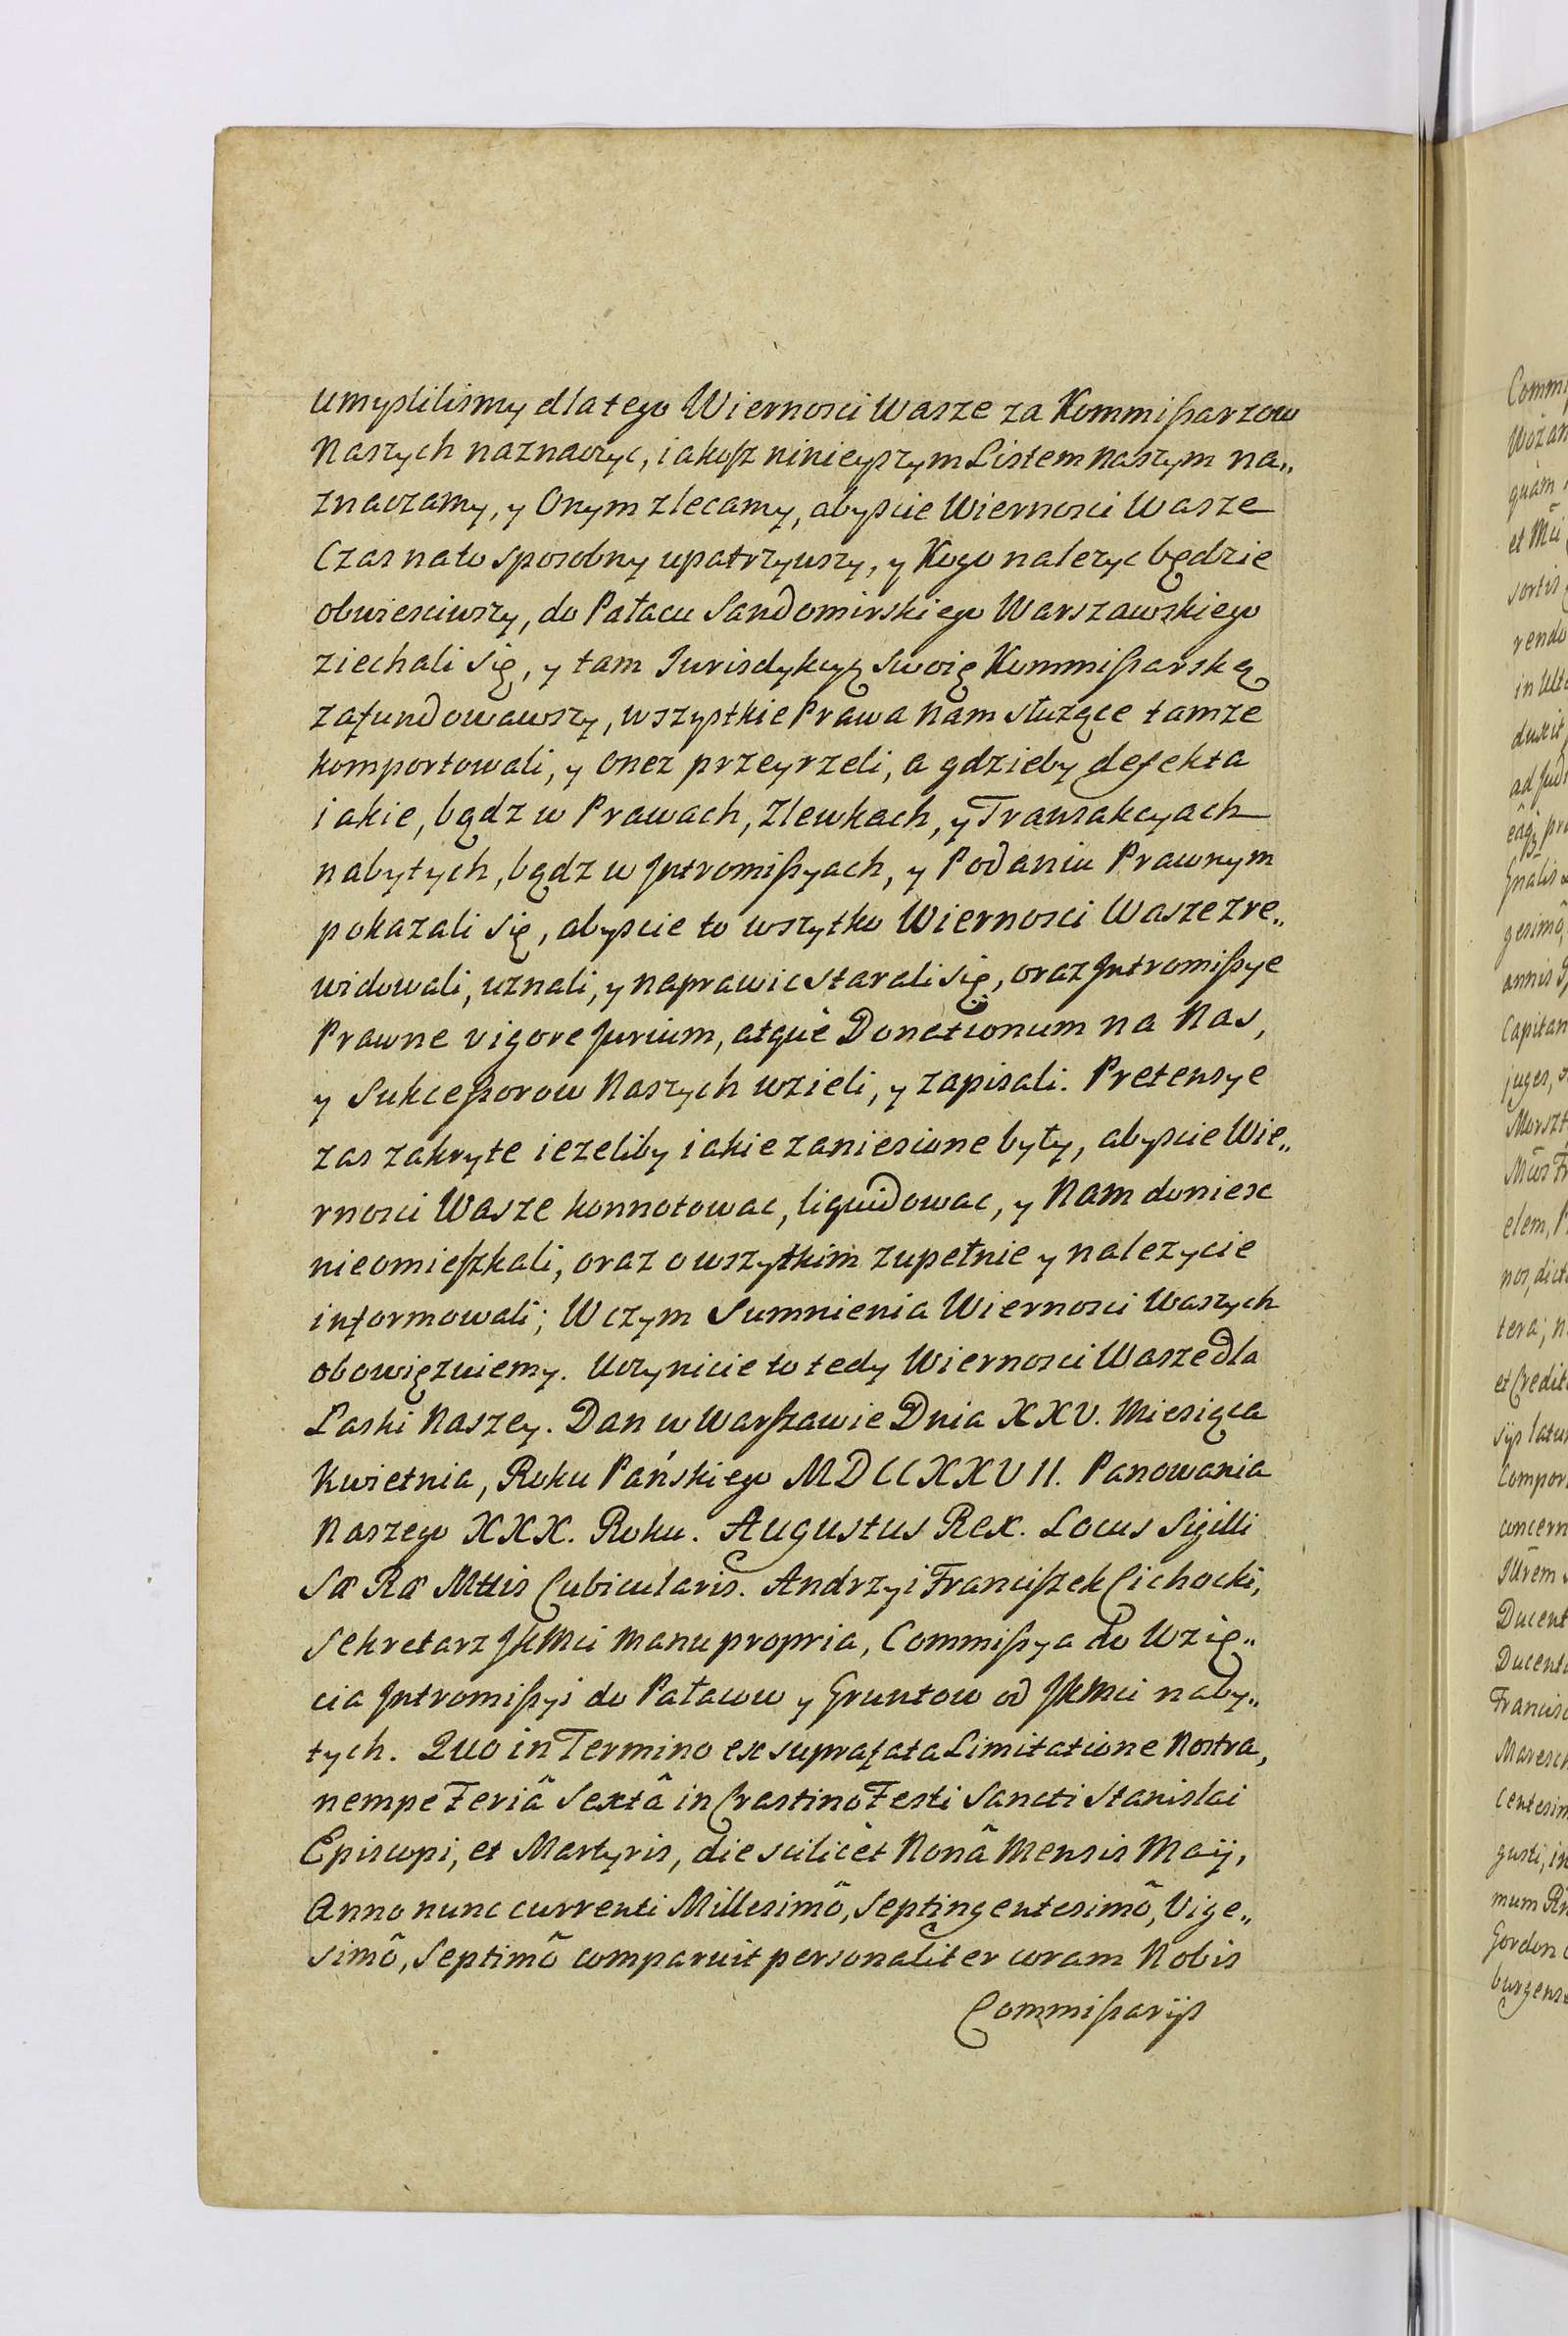 umysliliśmy dlatego Wiernosci Wasze za Kommißarzow
Naszych naznaczyc, iakoſz ninieyszym Listem Naszym na„
znaczamy, y Onym zlecamy, abyscie Wiernosci Wasze
Czas na to sposobny upatrzywszy, y Kogo nalezyc będzie
obwiesciwszy, do Pałacu Sandomirskiego Warszawskiego
ziechali się, y tam Jurisdykcyą swoię Kommißarską
zafundowawszy, wszystkie Prawa Nam służące tamze
komportowali, y Onez przeyrzeli, a gdzieby defekta
iakie, bądz w Prawach, Zlewkach, y Transakcyach
nabytych, bądz w Jntromißyach, y Podaniu Prawnym
pokazali się, abyscie to wszytko Wiernosci Wasze zre„
widowali, uznali, y naprawic starali się, oraz Jntromißye
Prawne vigore Jurium, atquè Donationum na Nas,
y Sukceßorow Naszych wzieli, y zapisali. Pretensye
zas zakryte iezeliby iakie zaniesione były, abyscie Wie„
rnosci Wasze konnotowac, liquidowac, y Nam doniesc
nieomieſzkali, oraz o wszytkim zupełnie y nalezycie
informowali; W czym Sumnienia Wiernosci Waszych
obowięzuiemy. Uczynicie to tedy Wiernosci Wasze dla
Laski Naszey. Dan w Warſzawie Dnia XXV. Miesiąca
Kwietnia, Roku Pańskiego MDCCXXVII. Panowania
Naszego XXX. Roku. Augustus Rex. Locus Sigilli
Sæ Ræ Mttis Cubicularis. Andrzyi Franciſzek Cichocki,
Sekretarz JKMci manu propria, Commißya do Wzię„
cia Jntromißyi do Pałacow y Gruntow od JKMci naby„
tych. Quo in Termino ex suprafata Limitatione Nostra,
nempe Feriâ Sextâ in Crastino Festi Sancti Stanislai
Episcopi, et Martyris, die scilicèt Nonâ Mensis Maÿ,
Anno nunc currenti Millesimô, Septingentesimô, Vige„
simô, Septimô comparuit personaliter coram Nobis
Commißarÿs